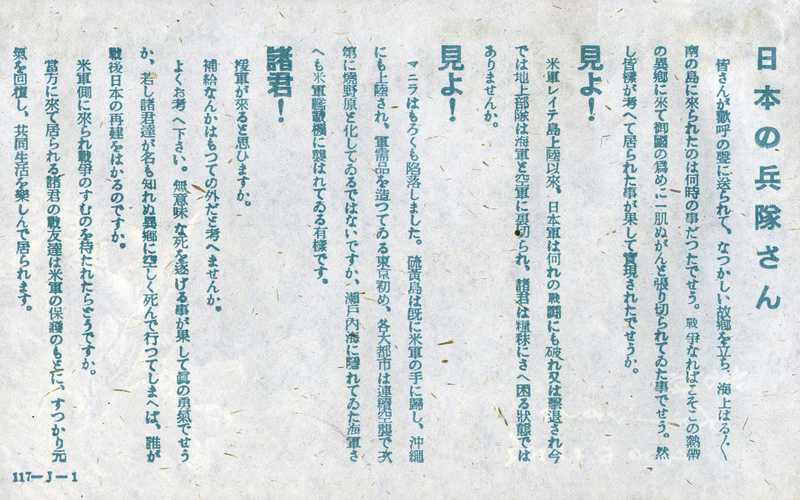 日本の兵隊さん
皆さんが歡呼の聲に送られて、なつかしい故鄕を立ち、海上はる〴〵
南の島に來られたのは何時の事だつたでせう。戰爭なればこそこの熱帶
の異鄕に來て御國の爲めに一肌ぬがんと張り切られてゐた事でせう。然
し皆樣が考へて居られた事が果して實現されたでせうか。
見よ！
米軍レイテ島上陸以來、日本軍は何れの戰鬪にも破れ又は擊退され今
では地上部隊は海軍と空軍に裏切られ、諸君は糧秣にさへ困る狀態では
ありませんか。
見よ！
マニラはもろくも陷落しました。硫黃島は既に米軍の手に歸し、沖繩
にも上陸され、軍需品を造つてゐる東京初め、各大都市は連續空襲で次
第に燒野原と化してゐるではないですか、瀨戶內海に隱れてゐた海軍さ
へも米軍艦載機に襲はれてゐる有樣です。
諸君！
援軍が來ると思ひますか。
補給なんかはもつての外だと考へませんか。
よくお考へ下さい。無意味な死を遂げる事が果して眞の勇氣でせう
か、若し諸君達が名も知れぬ異鄕に空しく死んで行つてしまへば、誰が
戰後日本の再建をはかるのですか。
米軍側に來られ戰爭のすむのを待たれたらどうですか。
當方に來て居られる諸君の戰友達は米軍の保護のもとに、すつかり元
氣を回復し、共同生活を樂しんで居られます。
117-J-1